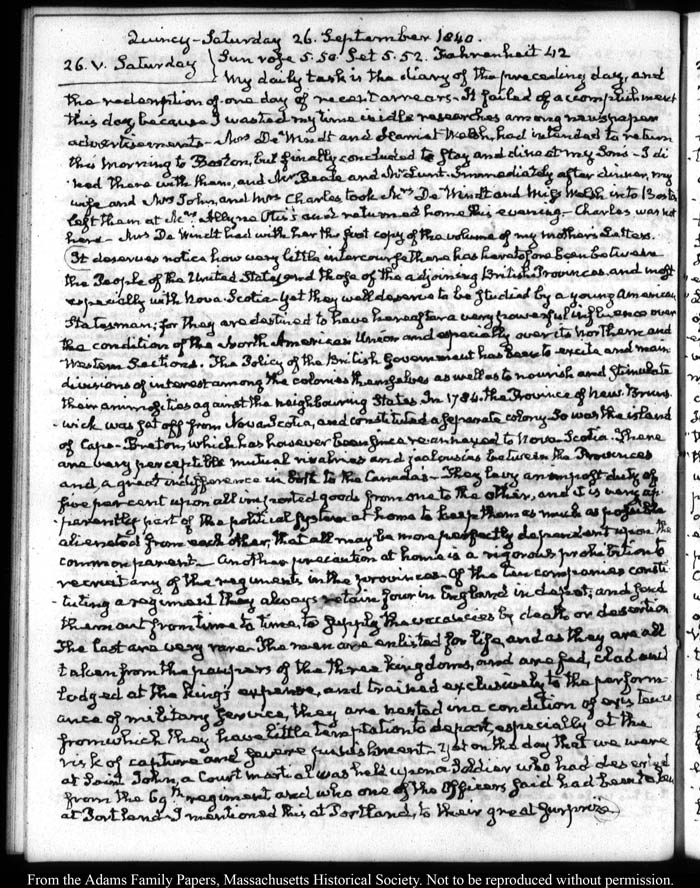 Quincy - Saturday 26. September 1840.
26. V. Saturday } Sun rose 5.50. Set 5.52. Fahrenheit 42
My daily task is the diary of the preceding day, and
the redemption of one day of recent arrears - It failed of accomplishment
this day, because I wasted my time in idle researches among newspaper
advertisements - Mrs De Windt and Harriet Welsh, had intended to return
this morning to Boston, but finally concluded to stay and dine at my Sons - I di
ned there with them, and Mr Beale and Mr Lunt. Immediately after dinner, my
wife and Mrs John, and Mrs Charles took Mrs De Windt and Miss Welsh in to Boston
left them at Mrs Alleyne Otis's and returned home this evening - Charles was not
here - Mrs De Windt had with her the first copy of the volume of my mother's Letters.
It deserves notice how very little intercourse there has heretofore been between
the People of the United States and those of the adjoining British Provinces, and most
especially with Nova-Scotia - yet they well deserve to be studied by a young American
Statesman; for they are destined to have hereafter a very powerful influence over
the condition of the North American Union and especially over its Northern and
Western Sections. The Policy of the British Government has been to excite and main
divisions of interest among the colonies themselves as well as to nourish and stimulate
their animosities against the neighbouring States. In 1784. the Province of New-Bruns
wick was set off from Nova Scotia, and constituted a separate colony. So was the island
of Cape-Breton, which has however been since re-annexed to Nova-Scotia. There
are very perceptible mutual rivalries and jealousies between the Provinces
and a great indifference in both to the Canada's - They levy an impost duty of
five per cent upon all imported goods from one to the other, and it is very ap
parently part of the political system at home to keep them as much as possible
alienated from each other, that all may be more perfectly dependent upon the
common parent - Another precaution at home is a rigorous prohibition to
recruit any of the regiments in the provinces - Of the ten companies consti
tuting a regiment they always retain four in England in depot; and send
them out from time to time, to supply the vacancies by death or desertion
The last are very rare - The men are enlisted for life, and as they are all
taken from the paupers of the three kingdoms, and are fed, clad and
lodged at the king's expense, and trained exclusively to the perform
ance of military service, they are nested in a condition of existence
from which they have little temptation to depart, especially at the
risk of capture and severe punishment - yet on the day that we were
at Saint John, a Court martial was held upon a Soldier who had deserted
from the 69th regiment and who one of the Officers said had been taken
at Portland - I mentioned this at Portland, to their great surprize.
From the Adams Family Papers, Massachusetts Historical Society. Not to be reproduced without permission.